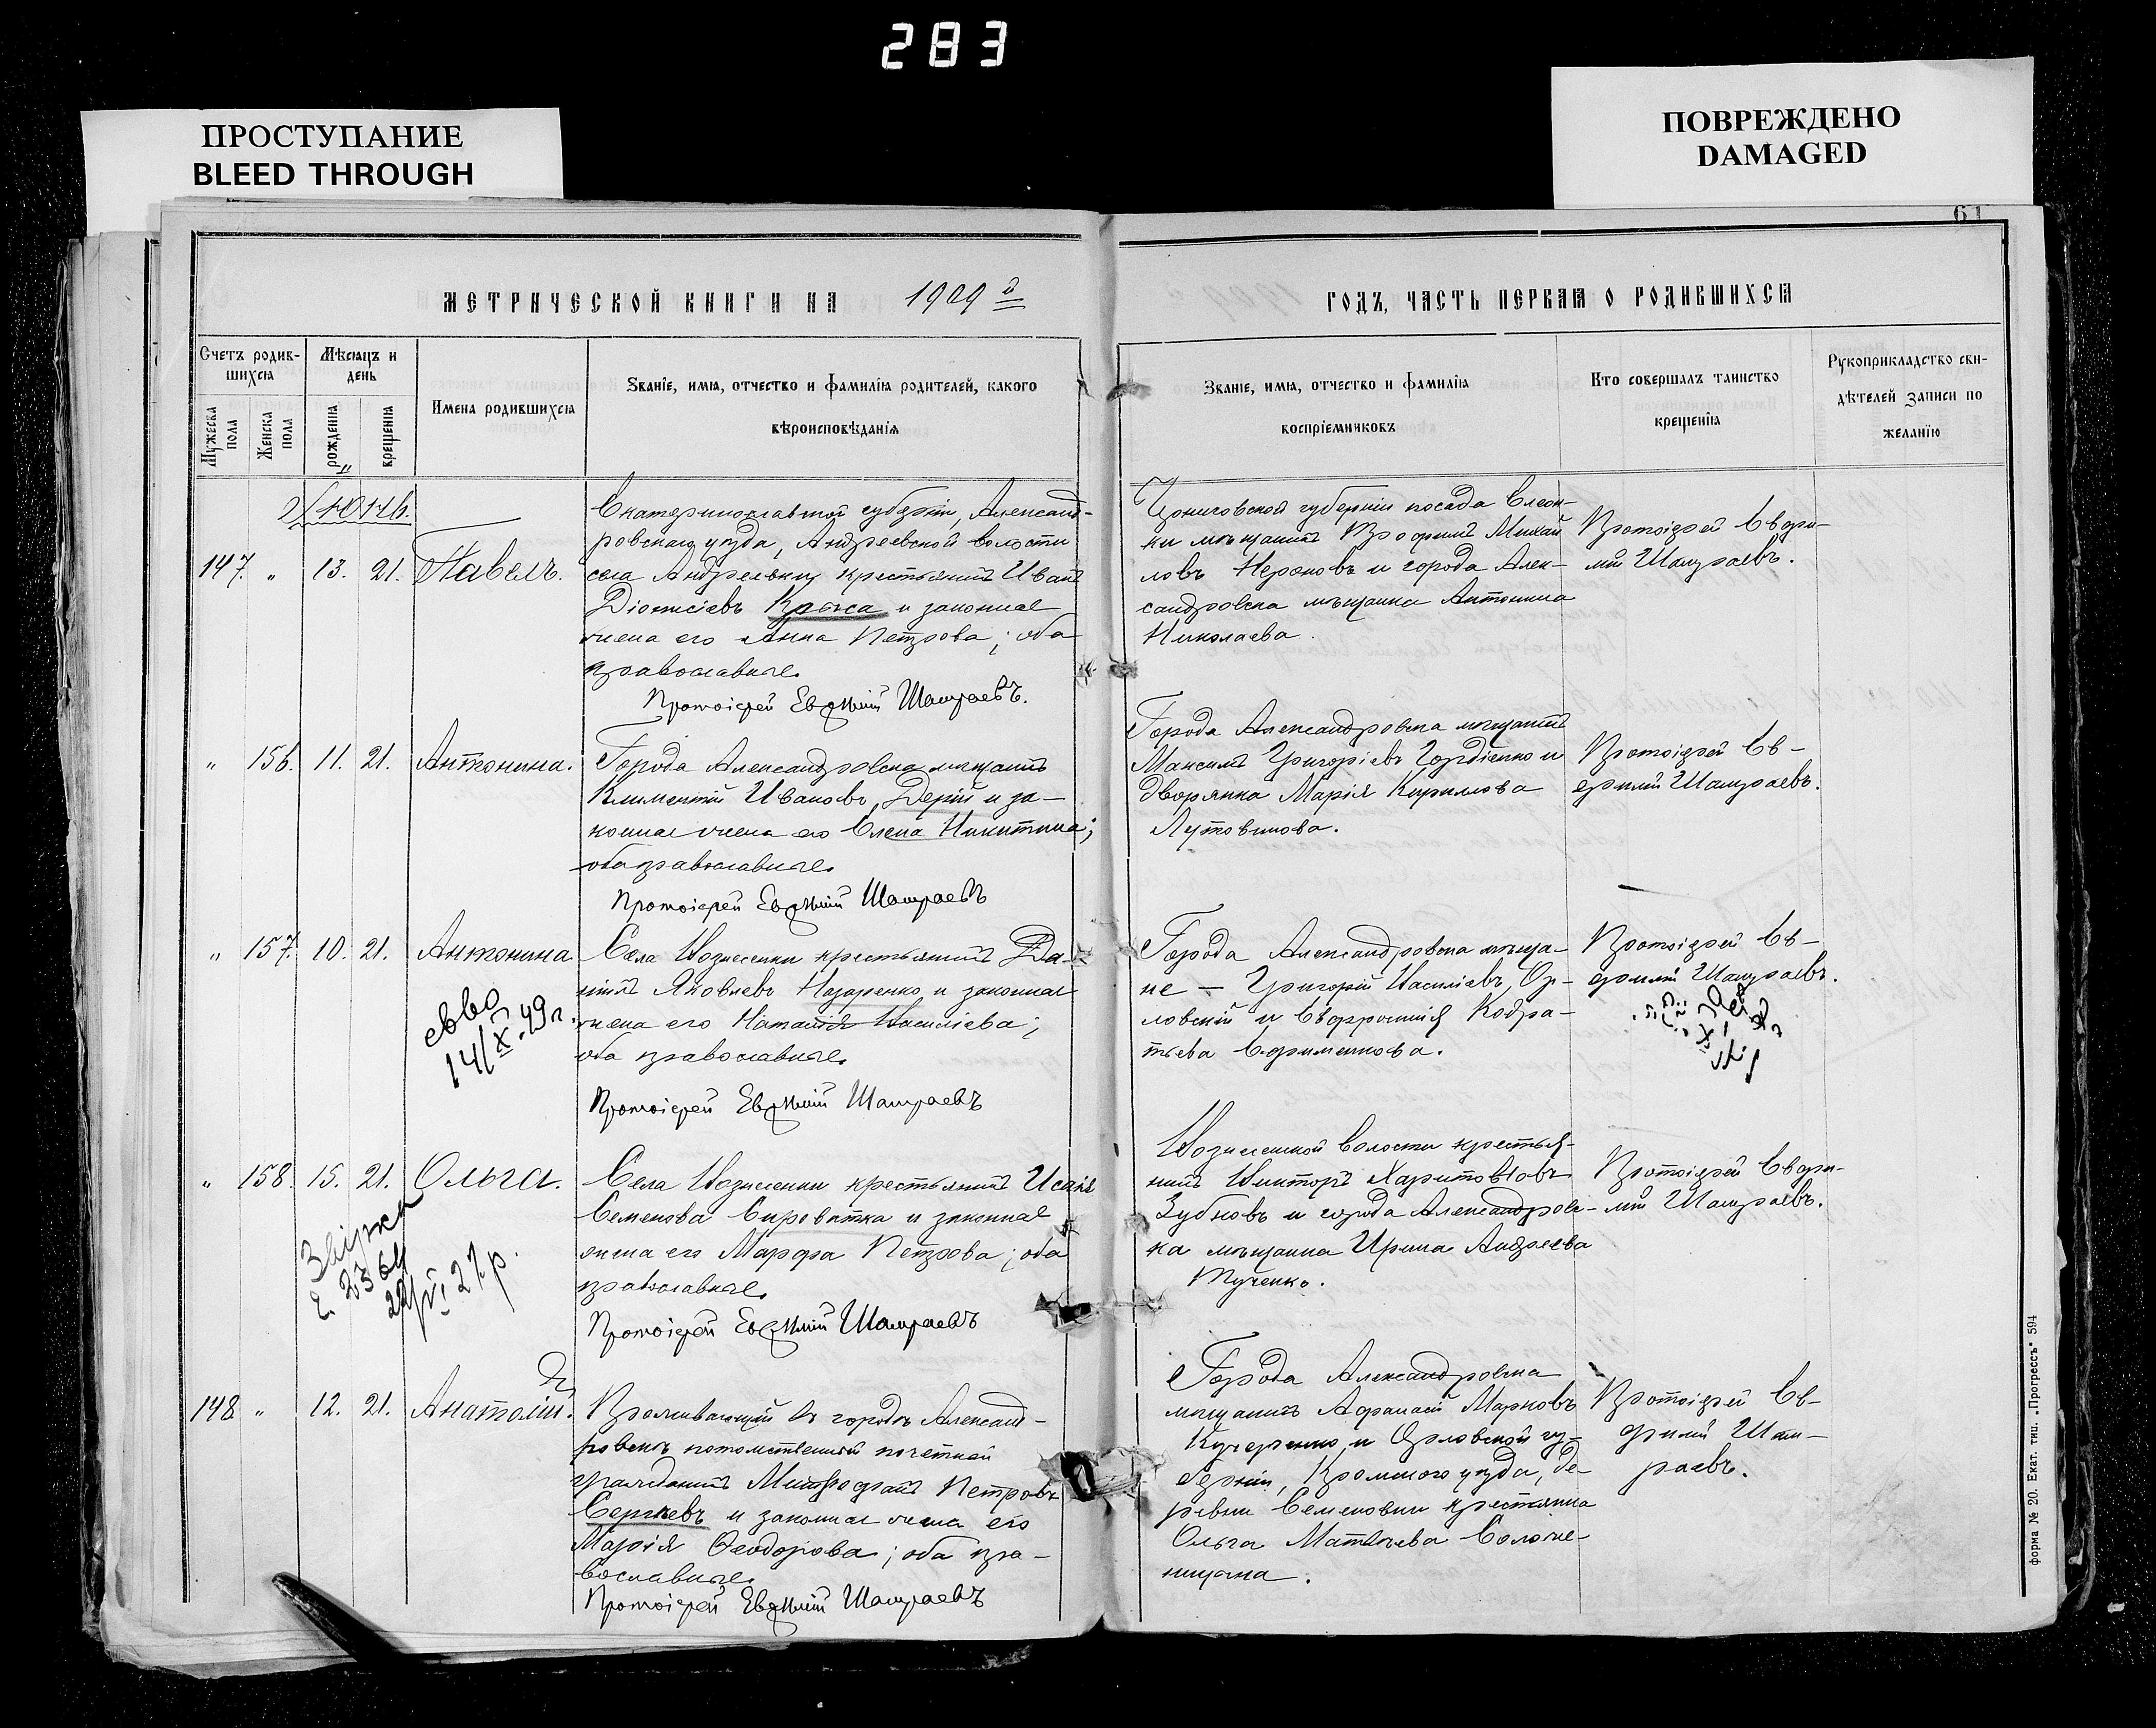 283
ПРОСТУПАНИЕ
BLEED THROUGH
ПОВРЕЖДЕНО
DAMAGED
61
МЕТРИЧЕСКОЙ КНИГИ НА 1909й
ГОДЪ, ЧАСТЬ ПЕРВАЯ О РОДИВШИХСЯ
Счетъ родив-
шихся
Мужеска пола
Женска пола
Мѣсяцъ и
день
рожденія
крещенія
Имена родившихся
Званіе, имя, отчество и фамилія родителей, какого
вѣроисповѣданія
Званіе, имя, отчество и фамилія
воспріемниковъ
Кто совершалъ таинство
крещенія
Рукоприкладство сви-
дѣтелей записи по
желанію
Іюнь.
147. " 13. 21. Павелъ.
Екатеринославской губерніи, Александ-
ровскаго уѣзда, Андреевской волости
села Андреевки крестьянинъ Иванъ
Діонисіевъ Краса и законная
жена его Анна Петрова; оба
православные.
Протоіерей Евѳимій Шамраевъ.
Черниговской губерніи посада Елеон-
ки мѣщанинъ Михай
ловъ и города Алек-
сандровска мѣщанка Антонина
Николаева.
Протоіерей Евѳи-
мій Шамраевъ.
" 156. 11. 21. Антонина.
Города Александровска мѣщанинъ
Климентій Ивановъ Дерій и за-
конная жена его Елена Никитина;
оба православные.
Протоіерей Евѳимій Шамраевъ
Города Александровска мѣщанинъ
Максимъ Григоріевъ Гордіенко и
дворянка Марія Кирилова
Лутовинова.
Протоіерей Ев-
ѳимій Шамраевъ.
" 157. 10. 21. Антонина
Села Вознесенки крестьянинъ Да-
ніилъ Яковлевъ Назаренко и законная
жена его Наталія Васильева;
оба православные.
Протоіерей Евѳимій Шамраевъ
14/X.49г.
Города Александровска мѣща-
не — Григорій Васильевъ Ор-
ловскій и Евфросинія Кодра-
тьева Ефименкова.
Протоіерей Ев-
ѳимій Шамраевъ.
" 158. 15. 21. Ольга.
Села Вознесенки крестьянинъ Исаія
Семенова Сироватка и законная
жена его Марфа Петрова; оба
православные.
Протоіерей Евѳимій Шамраевъ
2364
27р.
Вознесенской волости крестья-
нинъ Викторъ Харитоновъ
Зубковъ и города Александровс-
ка мѣщанка Ирина Андреева
Тученко.
Протоіерей Евѳи-
мій Шамраевъ.
148 " 12. 21. Анатолій.
Проживающій въ городѣ Александ-
ровскѣ потомственный почетный
гражданинъ Митрофанъ Петровъ
Сергѣевъ и законная жена его
Марія Ѳеодорова; оба пра-
вославные.
Протоіерей Евѳимій Шамраевъ
Города Александровска
мѣщанинъ Афанасій Марковъ
Кучеренко и Орловской гу-
берніи, Кромского уѣзда, де-
ревни Семеновки крестьянка
Ольга Матвѣева
Протоіерей Ев-
ѳимій Шам-
раевъ.
форма № 20. Екат. тип. „Прогрессъ“ 594